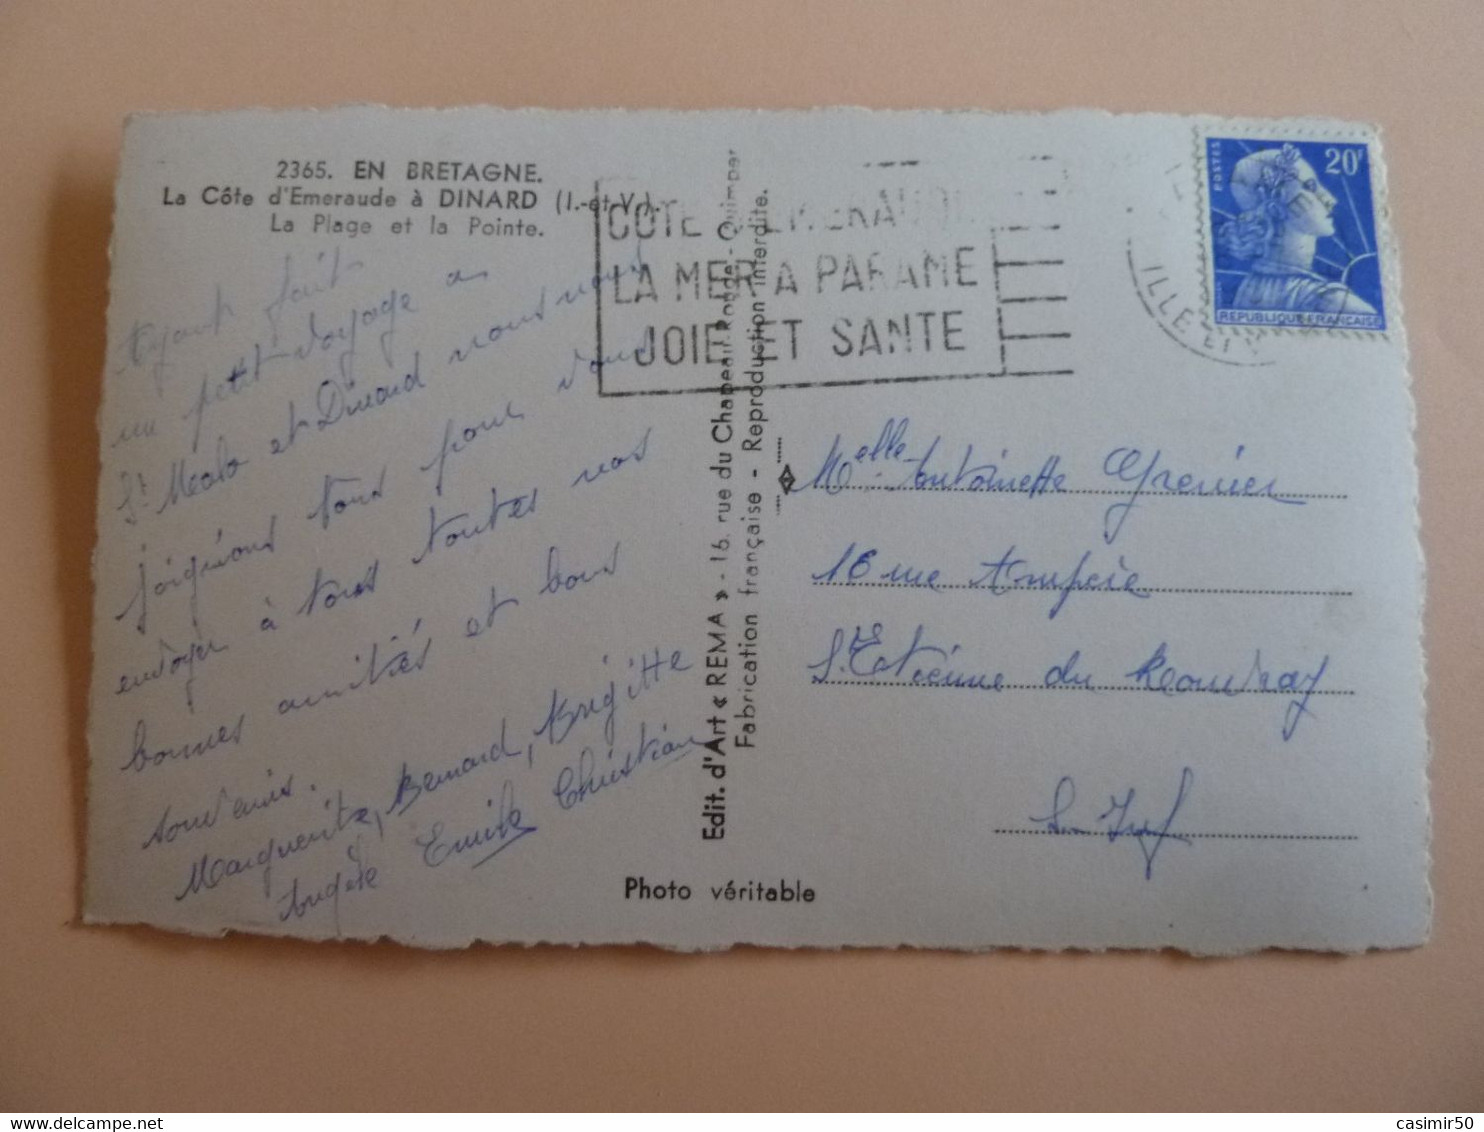 2365. EN BRETAGNE.
La Côte d'Emeraude à DINARD (I.-et-V.).
La Plage et la Pointe.
Ayant fait
un petit voyage a
St Malo et Dinard nous nous
joignons tous pour vous
envoyer à tous toutes nos
bonnes amitiés et bons
souvenirs.
Marguerite, Bernard, Brigitte
Angèle Emile Christian
COTE D'EMERAUDE
LA MER A PARAME
JOIE ET SANTE
ILLE ET V
POSTES
20F
REPUBLIQUE FRANÇAISE
Edit. d'Art « REMA » - 16, rue du Chapeau-Rouge - Quimper
Fabrication française - Reproduction interdite.
Melle Antoinette Grenier
16 rue Ampère
St Etienne du Rouvray
S. Inf
Photo véritable
casimir50